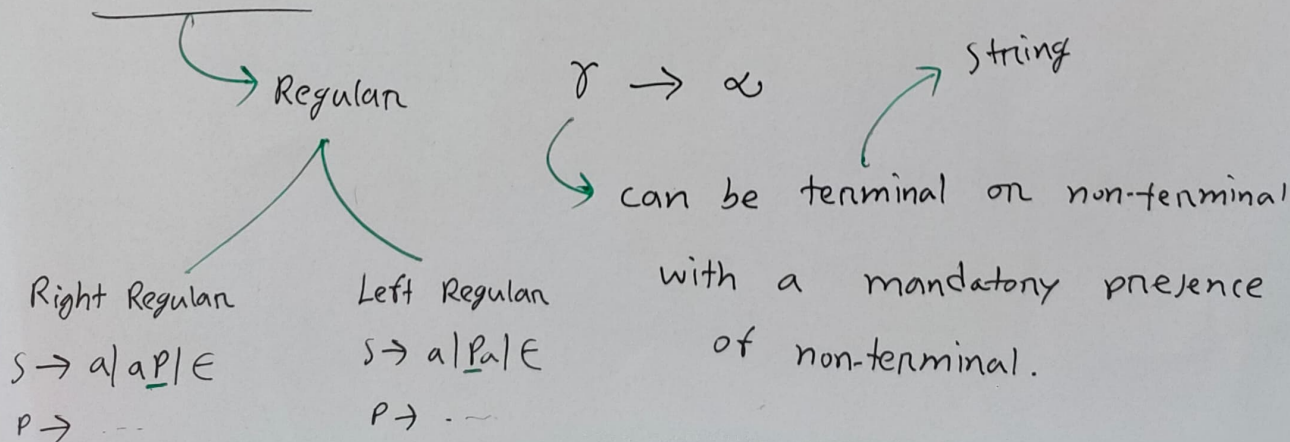 Regular
γ → α
string
can be terminal or non-terminal
with a mandatory presence
of non-terminal.
Right Regular
S → a| aP| ∈
P → ---
Left Regular
S → a| Pa| ∈
P → . --